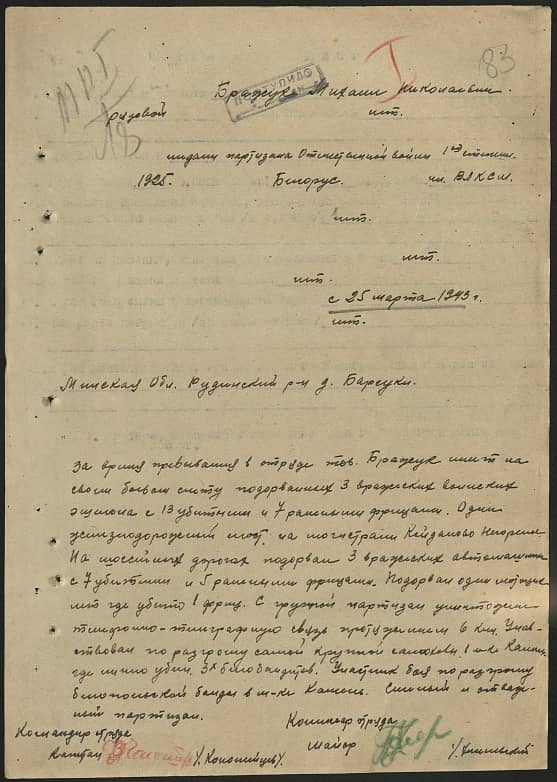 83
I
ПОСТУПИЛО
Бражук Михаил Николаевич
рядовой нет.
медали партизана Отечественной войны 1ой степени.
1925. Белорус. чл. ВЛКСМ.
нет.
нет.
нет.
с 25 марта 1943 г.
нет.
Минская Обл. Руденский р-н д. Барсуки.
За время пребывания в отряде тов. Бражук имеет на
своем боевом счету подорванных 3 вражеских воинских
эшелона с 13 убитыми и 7 ранеными фрицами. Один
железнодорожный мост, на магистрали Койданово
На шоссейных дорогах подорвал 3 вражеских автомашины
с 7 убитыми и 5 ранеными фрицами. Подорвал один
где убито 1 фриц. С группой партизан уничтожено
телефонно-телеграфную связь протяжением 6 км. Участ-
вовал по разгрому самой крупной 1 м-ке
где лично убил 3х белобандитов. Участник боя по разгрому
белопольской банды в м-ке Камень. Смелый и отваж-
ный партизан.
Командир отряда Комиссар отряда
Капитан майор